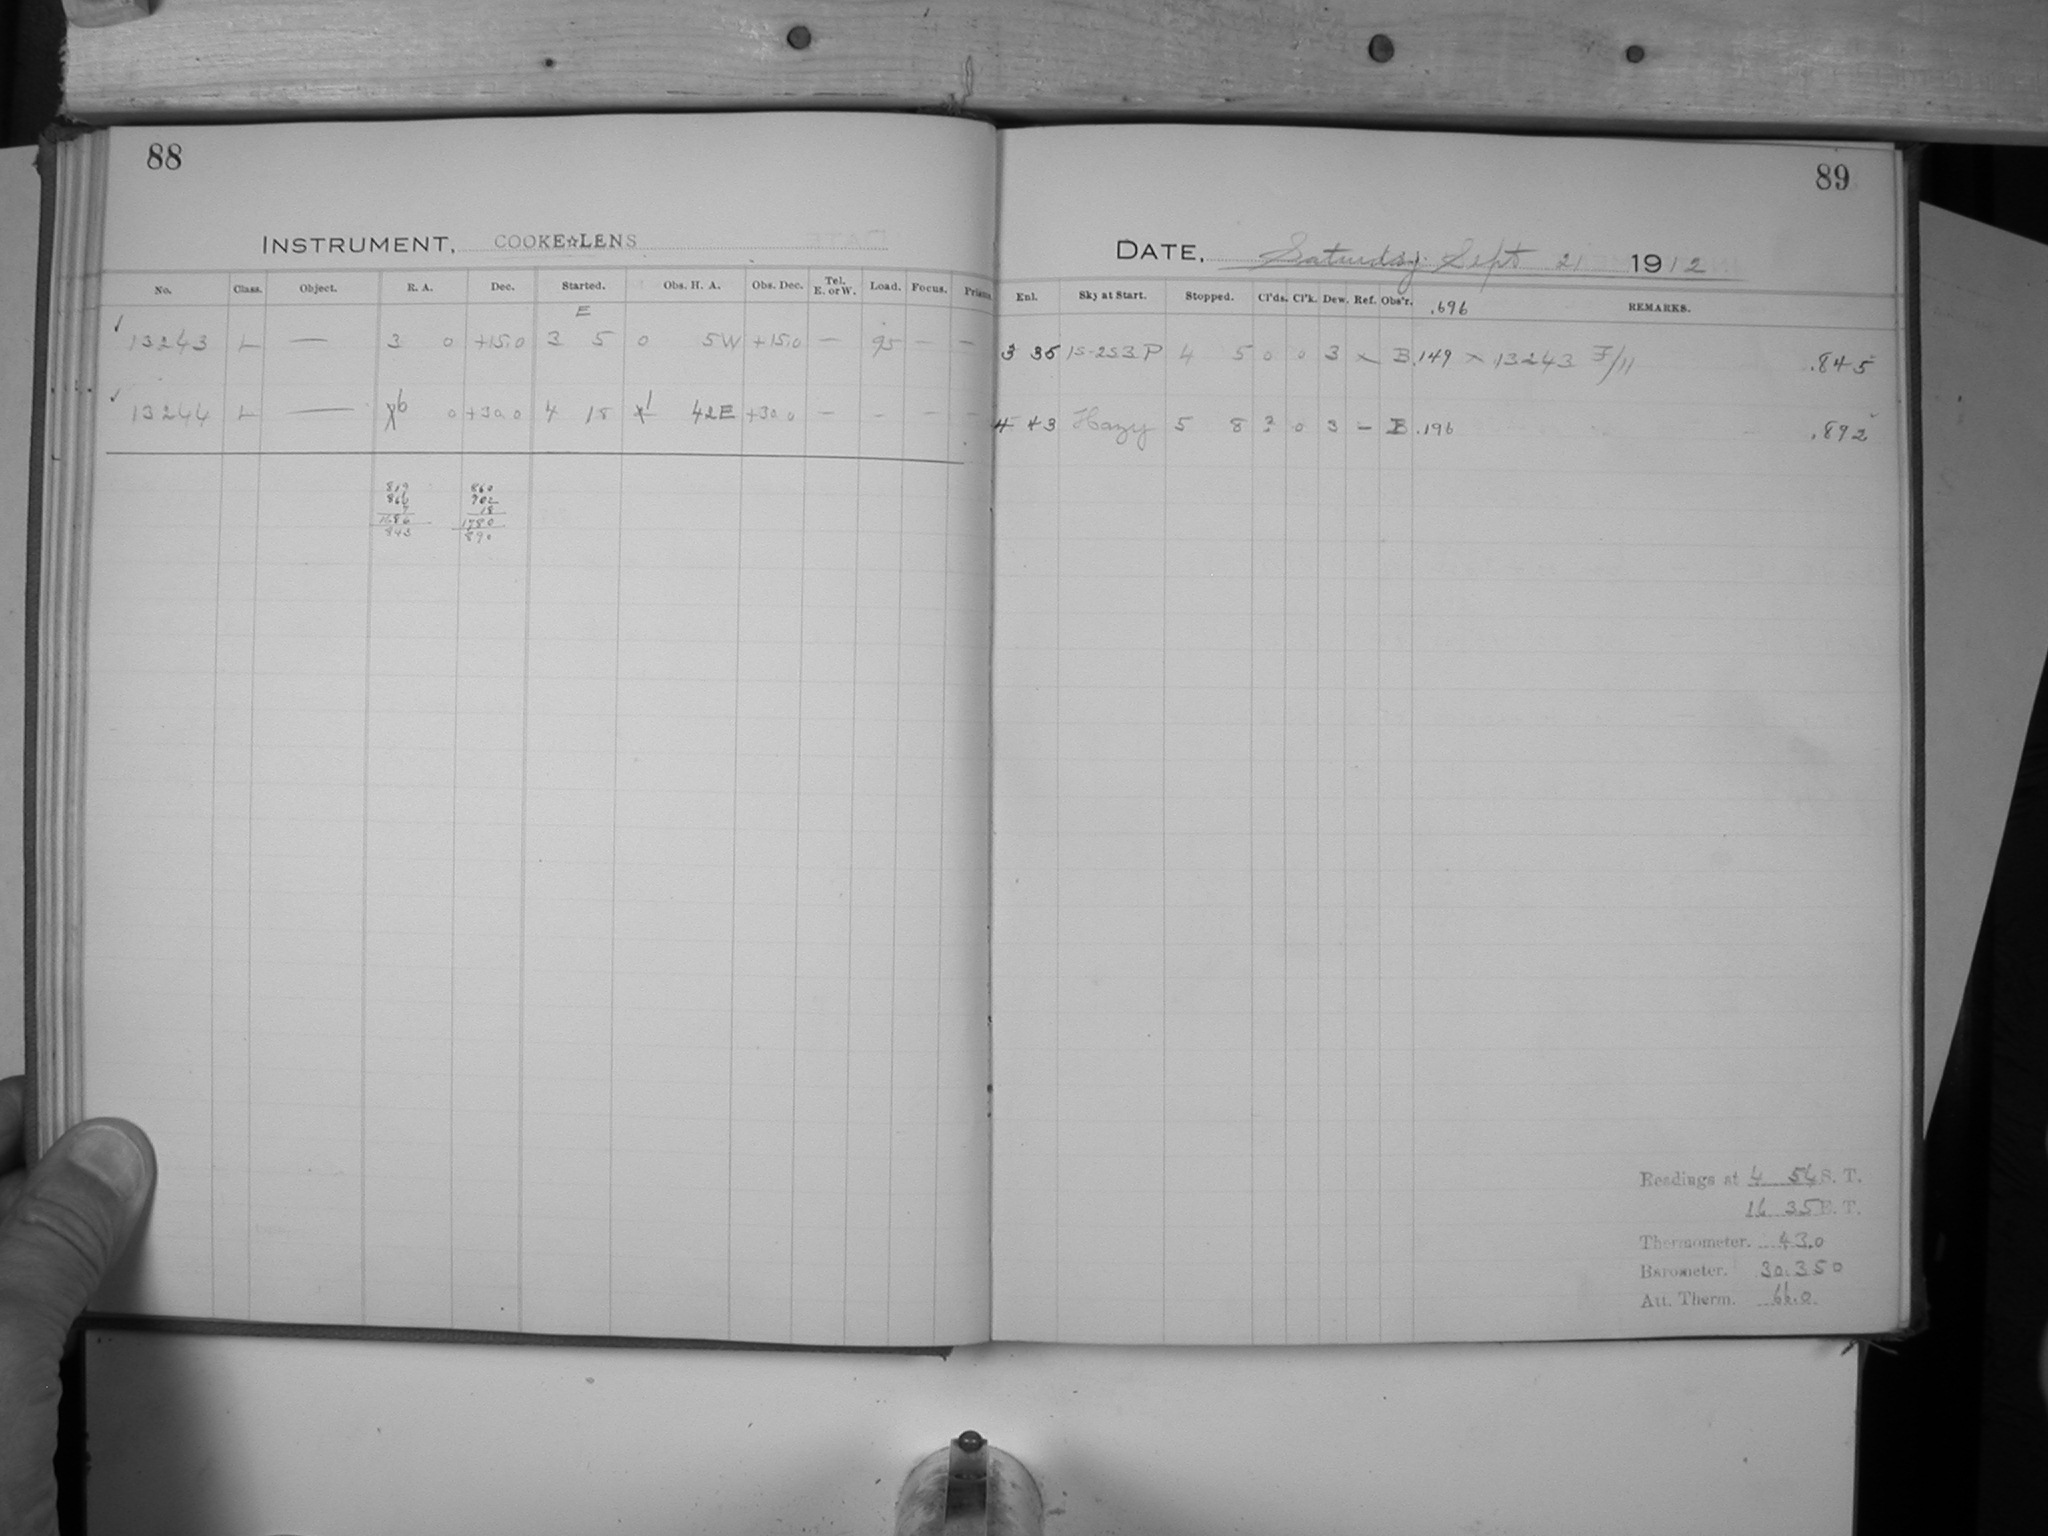 88
INSTRUMENT, COOKE☆LENS
No. Class. Object. R. A. Dec. Started. Obs. H. A. Obs. Dec. Tel. E. or W. Load. Focus. Prism.
E
✓ 13243 L — 3 0 +15.0 3 5 0 5W +15.0 — 95 — —
✓ 13244 L — 6 0 +30.0 4 18 1 42E +30.0 — - — —
819 860
866 902
7 18
1686 1780
843 890
89
DATE, Saturday Sept 21 1912
Enl. Sky at Start. Stopped. Cl'ds. Cl'k. Dew. Ref. Obs'r. .696 REMARKS.
3 35 1S-2S3.P 4 5 0 0 3 x B .149 x 13243 F/11 .845
4 43 Hazy 5 8 3 0 3 — B .196 .892
Readings at 4 54 S. T.
16 35 E. T.
Thermometer. 43.0
Barometer. 30.350
Att. Therm. 66.0